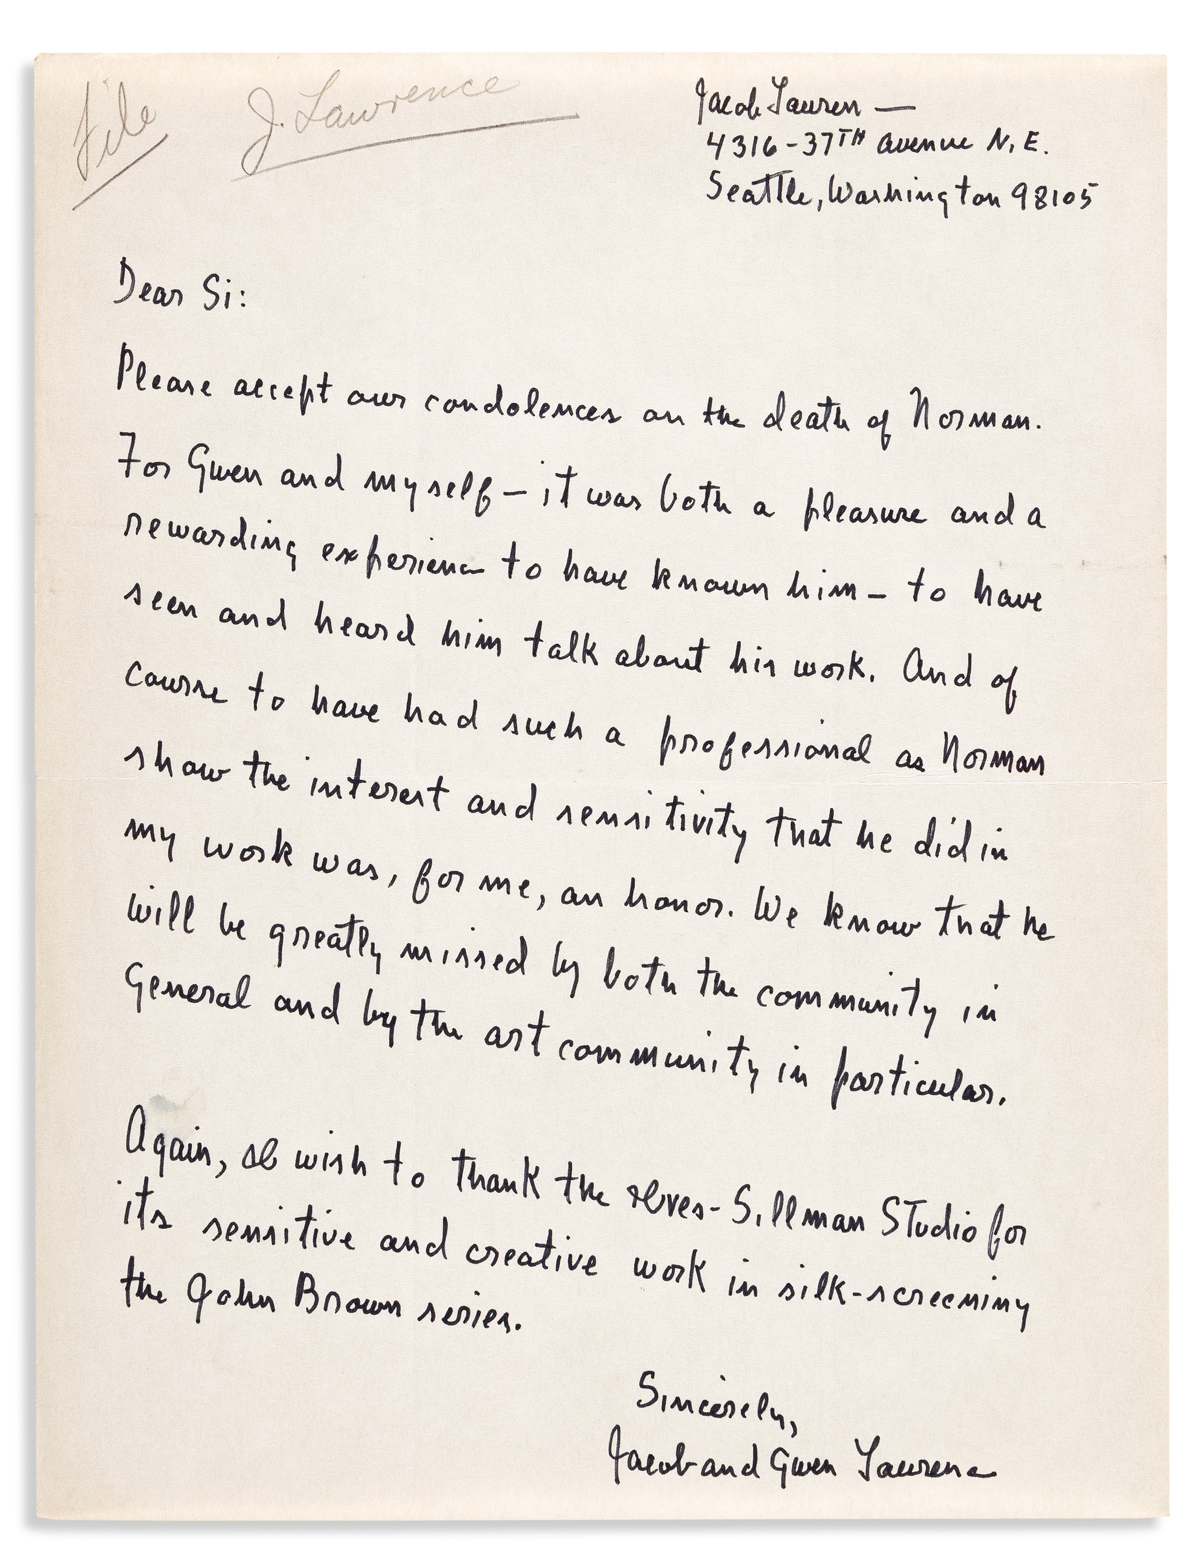 File J. Lawrence
Jacob Lawren —
4316-37TH Avenue N.E.
Seattle, Washington 98105
Dear Si:
Please accept our condolences on the death of Norman.
For Gwen and myself – it was both a pleasure and a
rewarding experience to have known him – to have
seen and heard him talk about his work. And of
course to have had such a professional as Norman
show the interest and sensitivity that he did in
my work was, for me, an honor. We know that he
will be greatly missed by both the community in
General and by the art community in particular.
Again, I wish to thank the Ives-Sillman Studio for
its sensitive and creative work in silk-screening
the John Brown series.
Sincerely,
Jacob and Gwen Lawrence